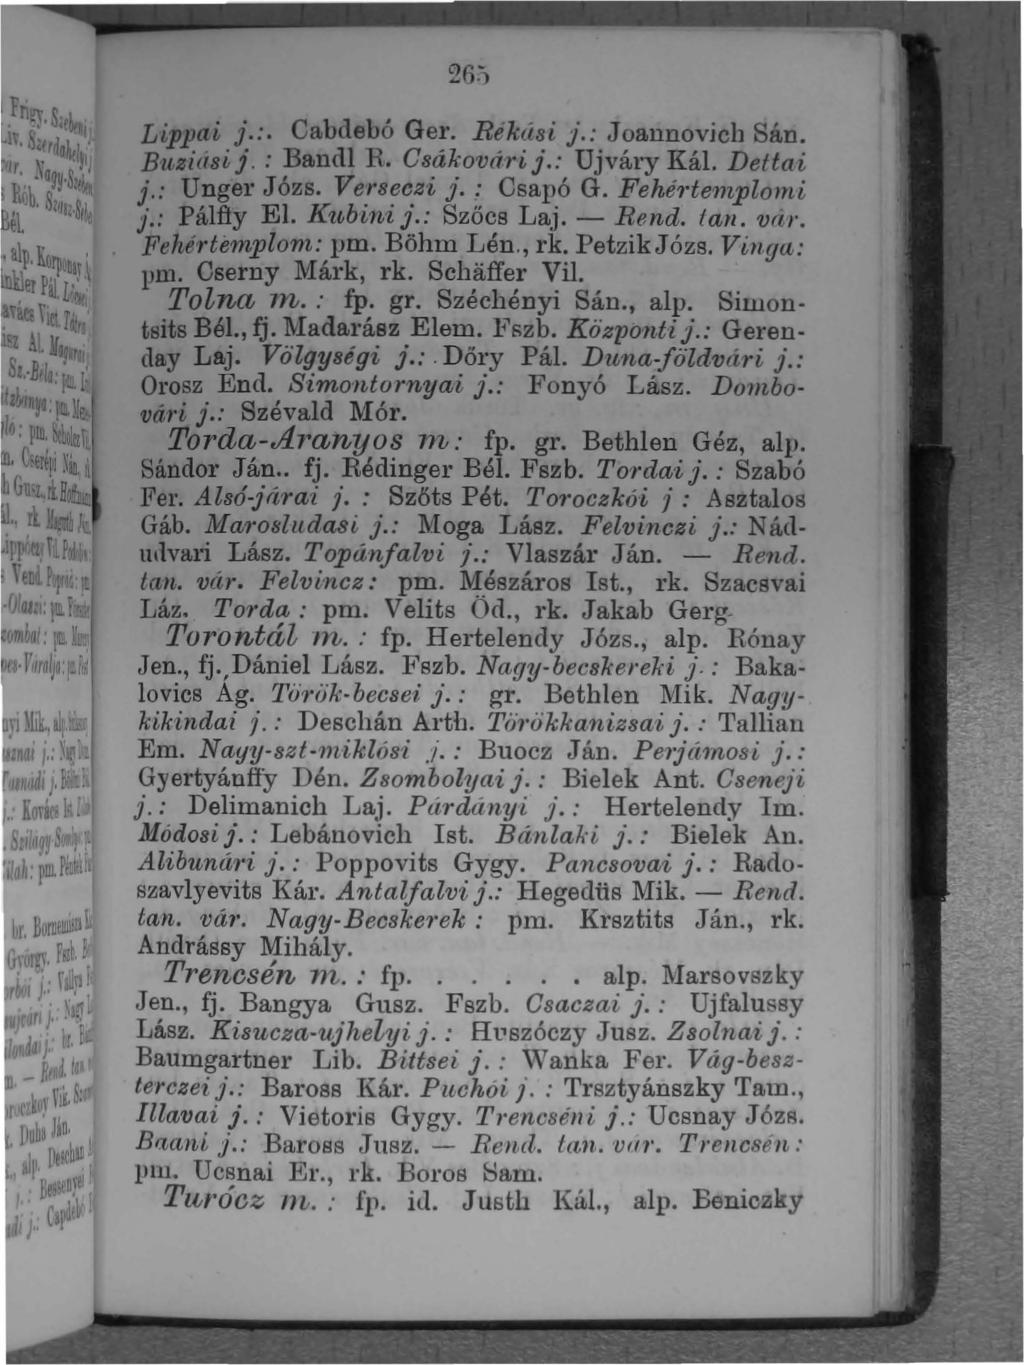 265
Lippai j.:. Cabdebó Ger. Rékási j.: Joannovich Sán.
Buziási j. : Bandl R. Csákovári j.: Ujváry Kál. Dettai
j.: Unger Józs. Verseczi j. : Csapó G. Fehértemplomi
j.: Pálffy El. Kubini j.: Szőcs Laj. — Rend. tan. vár.
Fehértemplom: pm. Böhm Lén., rk. Petzik Józs. Vinga:
pm. Cserny Márk, rk. Schäffer Vil.
Tolna m. : fp. gr. Széchényi Sán., alp. Simon-
tsits Bél., fj. Madarász Elem. Fszb. Központi j.: Geren-
day Laj. Völgységi j.: Dőry Pál. Duna-földvári j.:
Orosz End. Simontornyai j.: Fonyó Lász. Dombo-
vári j.: Szévald Mór.
Torda-Aranyos m: fp. gr. Bethlen Géz, alp.
Sándor Ján.. fj. Rédinger Bél. Fszb. Tordai j. : Szabó
Fer. Alsó-járai j. : Szőts Pét. Toroczkói j : Asztalos
Gáb. Marosludasi j.: Moga Lász. Felvinczi j.: Nád-
udvari Lász. Topánfalvi j.: Vlaszár Ján. — Rend.
tan. vár. Felvincz: pm. Mészáros Ist., rk. Szacsvai
Láz. Torda : pm. Velits Öd., rk. Jakab Gerg.
Torontál m. : fp. Hertelendy Józs., alp. Rónay
Jen., fj. Dániel Lász. Fszb. Nagy-becskereki j. : Baka-
lovics Ág. Török-becsei j. : gr. Bethlen Mik. Nagy-
kikindai j. : Deschán Arth. Törökkanizsai j. : Tallian
Em. Nagy-szt-miklósi j. : Buocz Ján. Perjámosi j. :
Gyertyánffy Dén. Zsombolyai j. : Bielek Ant. Cseneji
j. : Delimanich Laj. Párdányi j. : Hertelendy Im.
Módosi j. : Lebánovich Ist. Bánlaki j. : Bielek An.
Alibunári j. : Poppovits Gygy. Pancsovai j. : Rado-
szavlyevits Kár. Antalfalvi j.: Hegedüs Mik. — Rend.
tan. vár. Nagy-Becskerek : pm. Krsztits Ján., rk.
Andrássy Mihály.
Trencsén m. : fp. . . . . . . alp. Marsovszky
Jen., fj. Bangya Gusz. Fszb. Csaczai j. : Ujfalussy
Lász. Kisucza-ujhelyi j. : Hvszóczy Jusz. Zsolnai j. :
Baumgartner Lib. Bittsei j. : Wanka Fer. Vág-besz-
terczei j.: Baross Kár. Puchói j. : Trsztyánszky Tam.,
Illavai j. : Vietoris Gygy. Trencséni j.: Ucsnay Józs.
Baani j.: Baross Jusz. — Rend. tan. vár. Trencsén:
pm. Ucsnai Er., rk. Boros Sam.
Turócz m. : fp. id. Justh Kál., alp. Beniczky